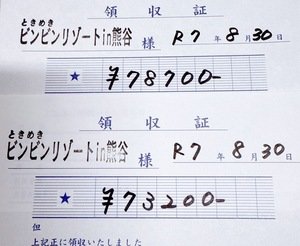 領収証
ときめき
ビンビンリゾートin熊谷 様 R7年8月30日
★ ¥78700-
領収証
ときめき
ビンビンリゾートin熊谷 様 R7年8月30日
★ ¥73200-
但
上記正に領収いたしました